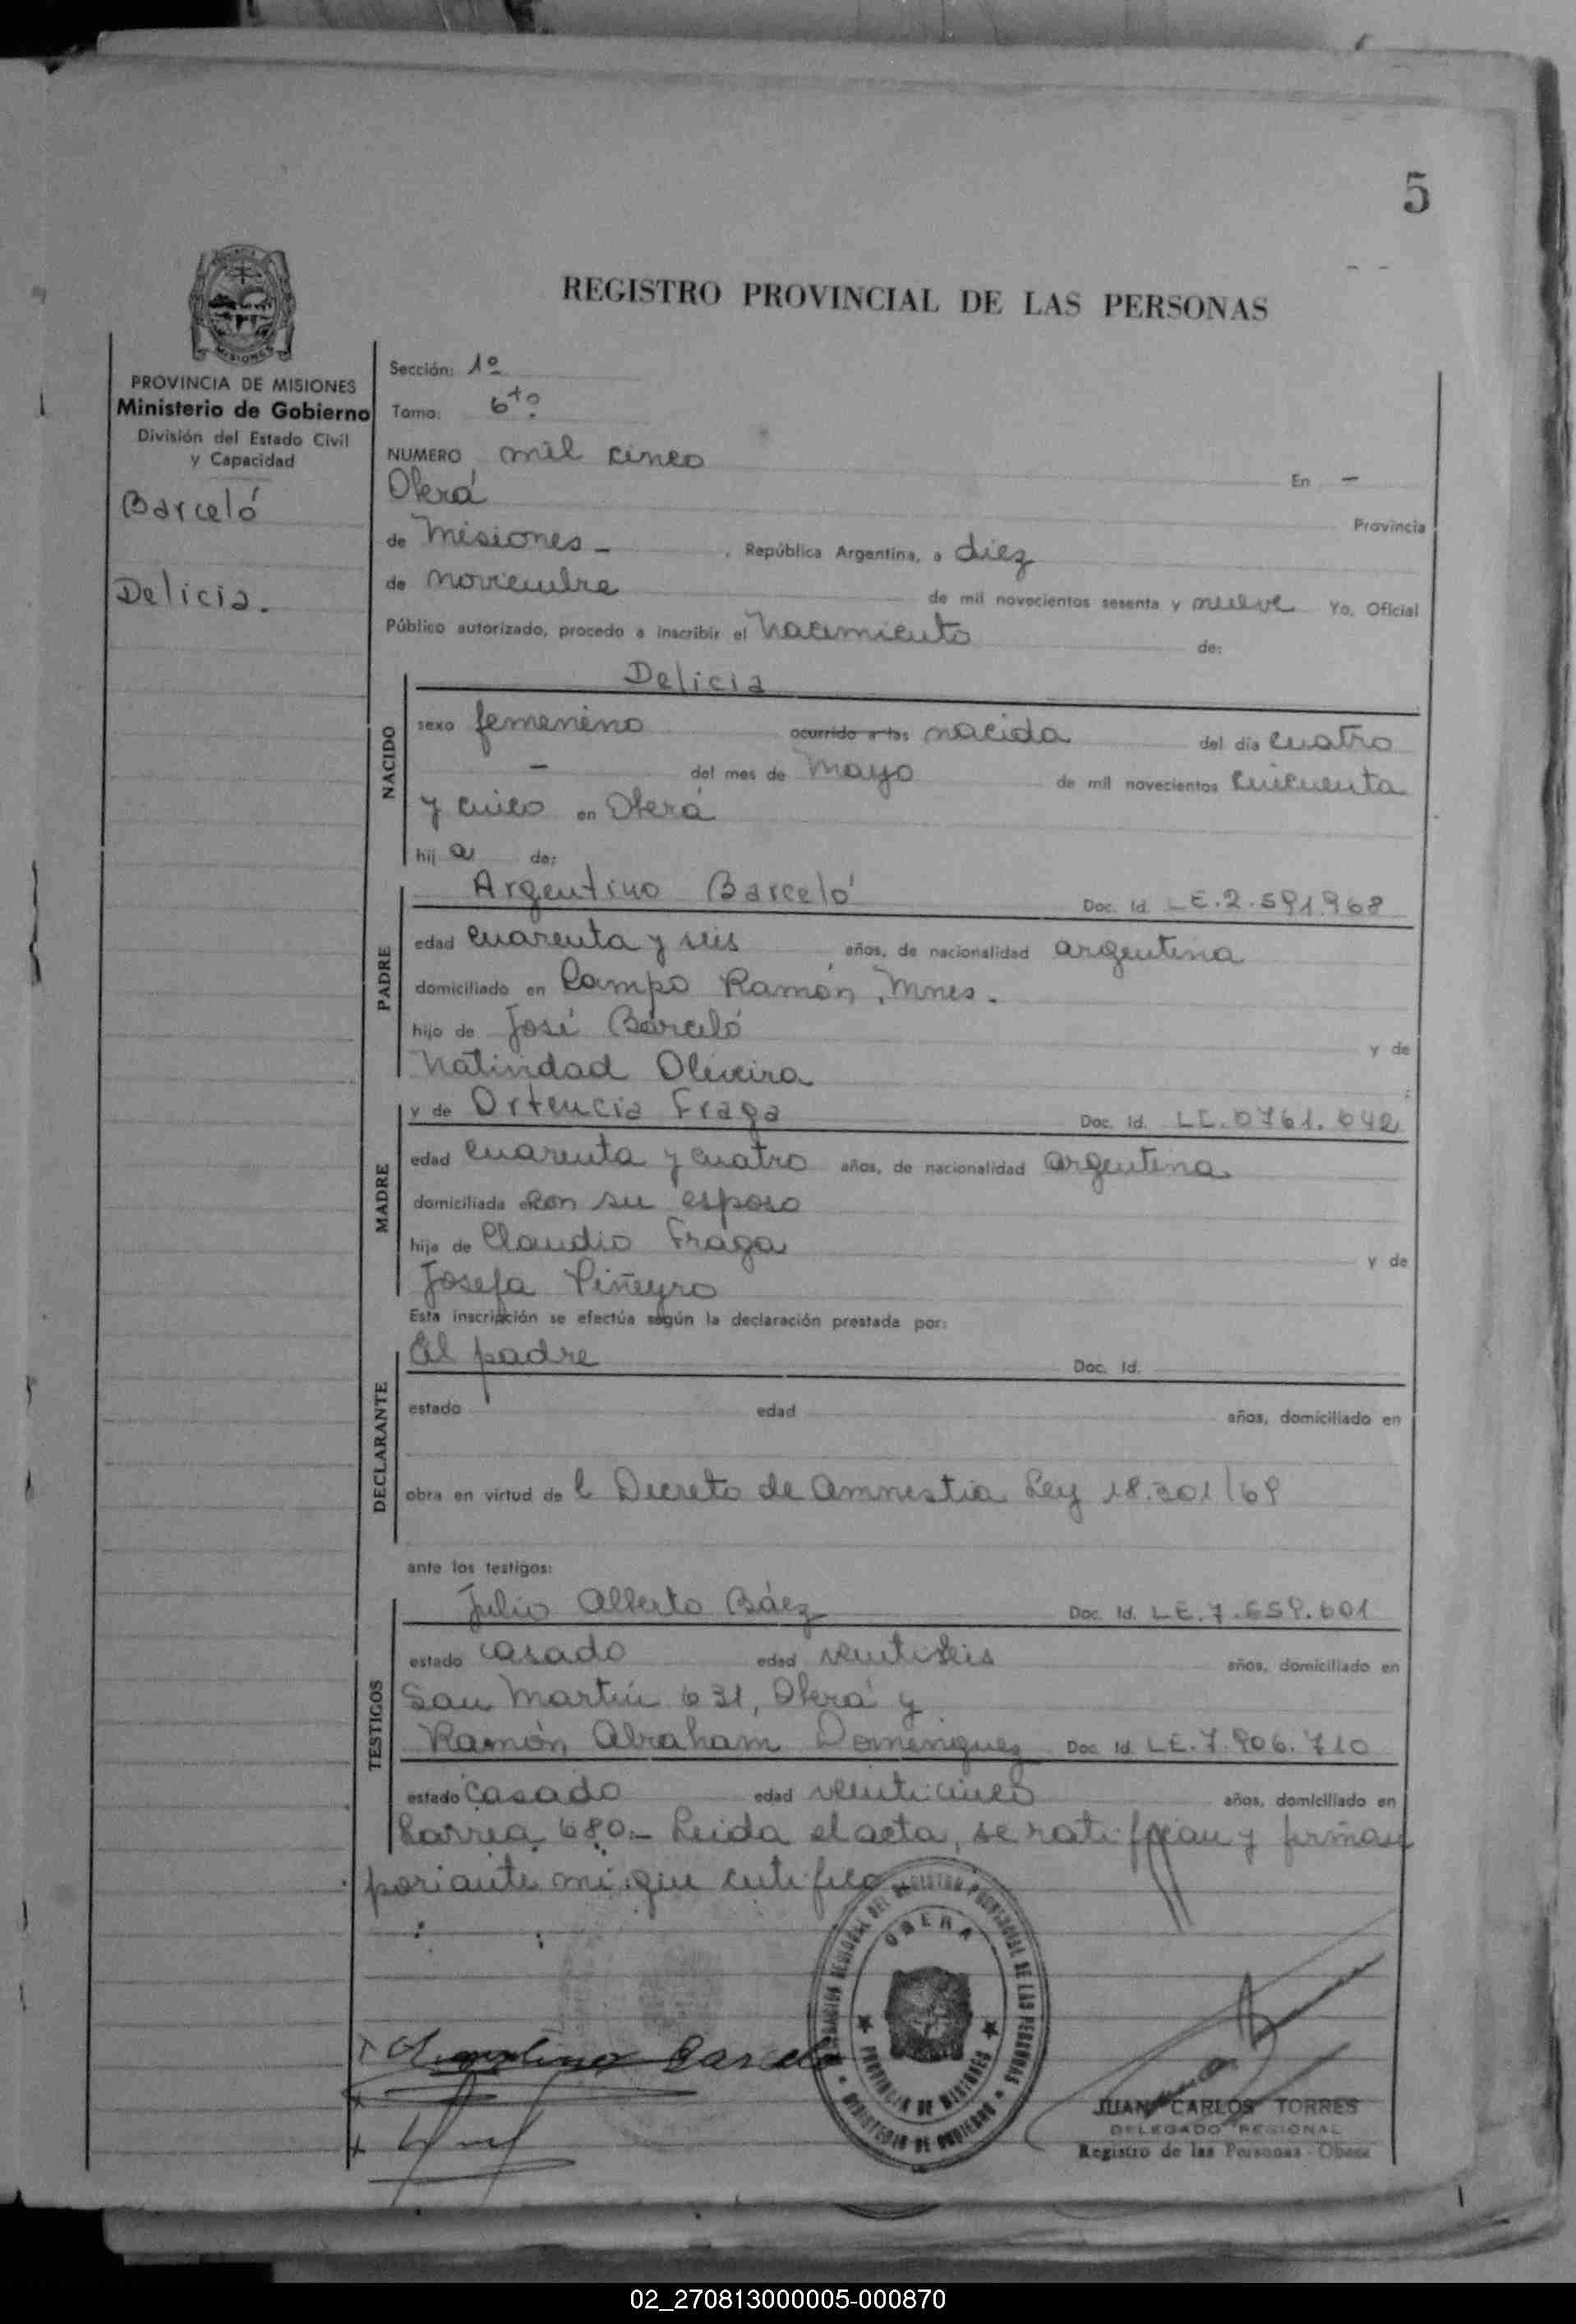 5
REGISTRO PROVINCIAL DE LAS PERSONAS
MISIONES
PROVINCIA DE MISIONES
Ministerio de Gobierno
División del Estado Civil
y Capacidad
Barceló
Delicia.
Sección: 1º
Tomo: 6to
NUMERO mil cinco
En -
Oberá
Provincia
de Misiones - , República Argentina, a diez
de noviembre de mil novecientos sesenta y nueve Yo, Oficial
Público autorizado, procedo a inscribir el Nacimiento de:
Delicia
NACIDO
sexo femenino ocurrido a las nacida del día cuatro
- del mes de Mayo de mil novecientos cincuenta
y cinco en Oberá
hij a de:
Argentino Barceló Doc. Id. LE.2.591.968
PADRE
edad cuarenta y seis años, de nacionalidad argentina
domiciliado en Campo Ramón, Mnes.
hijo de José Barceló y de
Natividad Oliveira
y de Ortencia Fraga Doc. Id. LC.0761.642
MADRE
edad cuarenta y cuatro años, de nacionalidad argentina
domiciliada con su esposo
hija de Claudio Fraga y de
Josefa Piñeyro
Esta inscripción se efectúa según la declaración prestada por:
El padre Doc. Id.
DECLARANTE
estado edad años, domiciliado en
obra en virtud de l Decreto de Amnestia Ley 18.301/69
ante los testigos:
Julio Alberto Báez Doc. Id. LE.7.659.601
TESTIGOS
estado casado edad veintiseis años, domiciliado en
San Martín 631, Oberá y
Ramón Abraham Domeniguez Doc. Id. LE.7.906.710
estado casado edad veinticinco años, domiciliado en
Larrea 680.- Leida el acta, se ratifican y firman
por ante mi que certifico
OBERA
PROVINCIA DE MISIONES
MINISTERIO DE GOBIERNO
Argentino Barceló
JUAN CARLOS TORRES
DELEGADO REGIONAL
Registro de las Personas - Obera
02_270813000005-000870